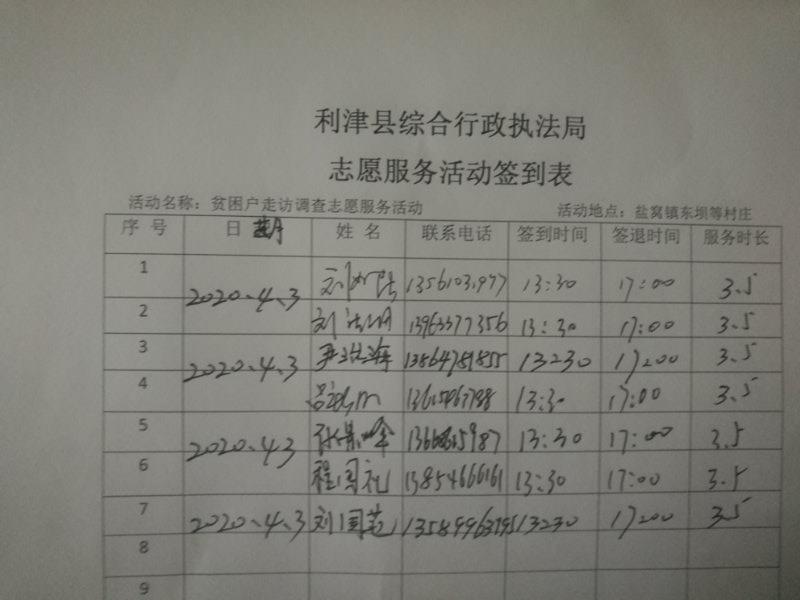 利津县综合行政执法局
志愿服务活动签到表
活动名称：贫困户走访调查志愿服务活动 活动地点：盐窝镇东坝等村庄
序号 日期 姓名 联系电话 签到时间 签退时间 服务时长
1 2020.4.3 13:30 17:00 3.5
2 刘 13963377356 13:30 17:00 3.5
3 2020.4.3 13864781855 13:30 17:00 3.5
4 13:30 17:00 3.5
5 2020.4.3 13:30 17:00 3.5
6 程国礼 13854666161 13:30 17:00 3.5
7 2020.4.3 刘国范 13589963795 13:30 17:00 3.5
8
9